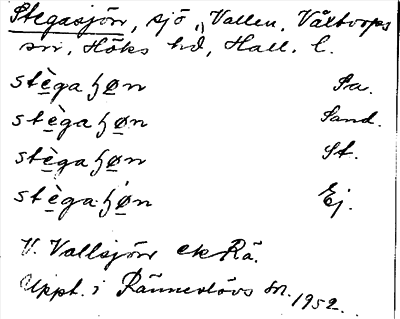 Stegasjön, sjö, Vallen, Våxtorps
sn, Höks hd, Hall. l.
stègaꜧøn Pa.
stègaꜧøn Sand.
stègaꜧøn St.
stègaꜧøn Ej.
V. Vallsjön ekRä.
Uppt. i Ränneslövs sn. 1952.